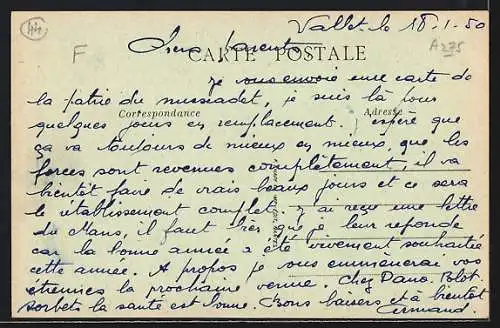 44
Vallet le 18-1-50
F
Chers parents
A275
CARTE POSTALE
je vous envoie une carte de
la patrie du muscadet, je suis là pour
Correspondance
Adresse
quelques jours en remplacement. J'espère que
ça va toujours de mieux en mieux, que les
forces sont revenues complètement, il va
bientôt faire de vrais beaux jours et ce sera
le établissement complet. J'ai reçu une lettre
du Mans, il faut que je leur réponde
car la bonne année a été vivement souhaitée
cette année. A propos je vous emmènerai vos
étrennes la prochaine venue. Chez
sorbets la santé est bonne. Bons baisers et à bientôt
Armand.